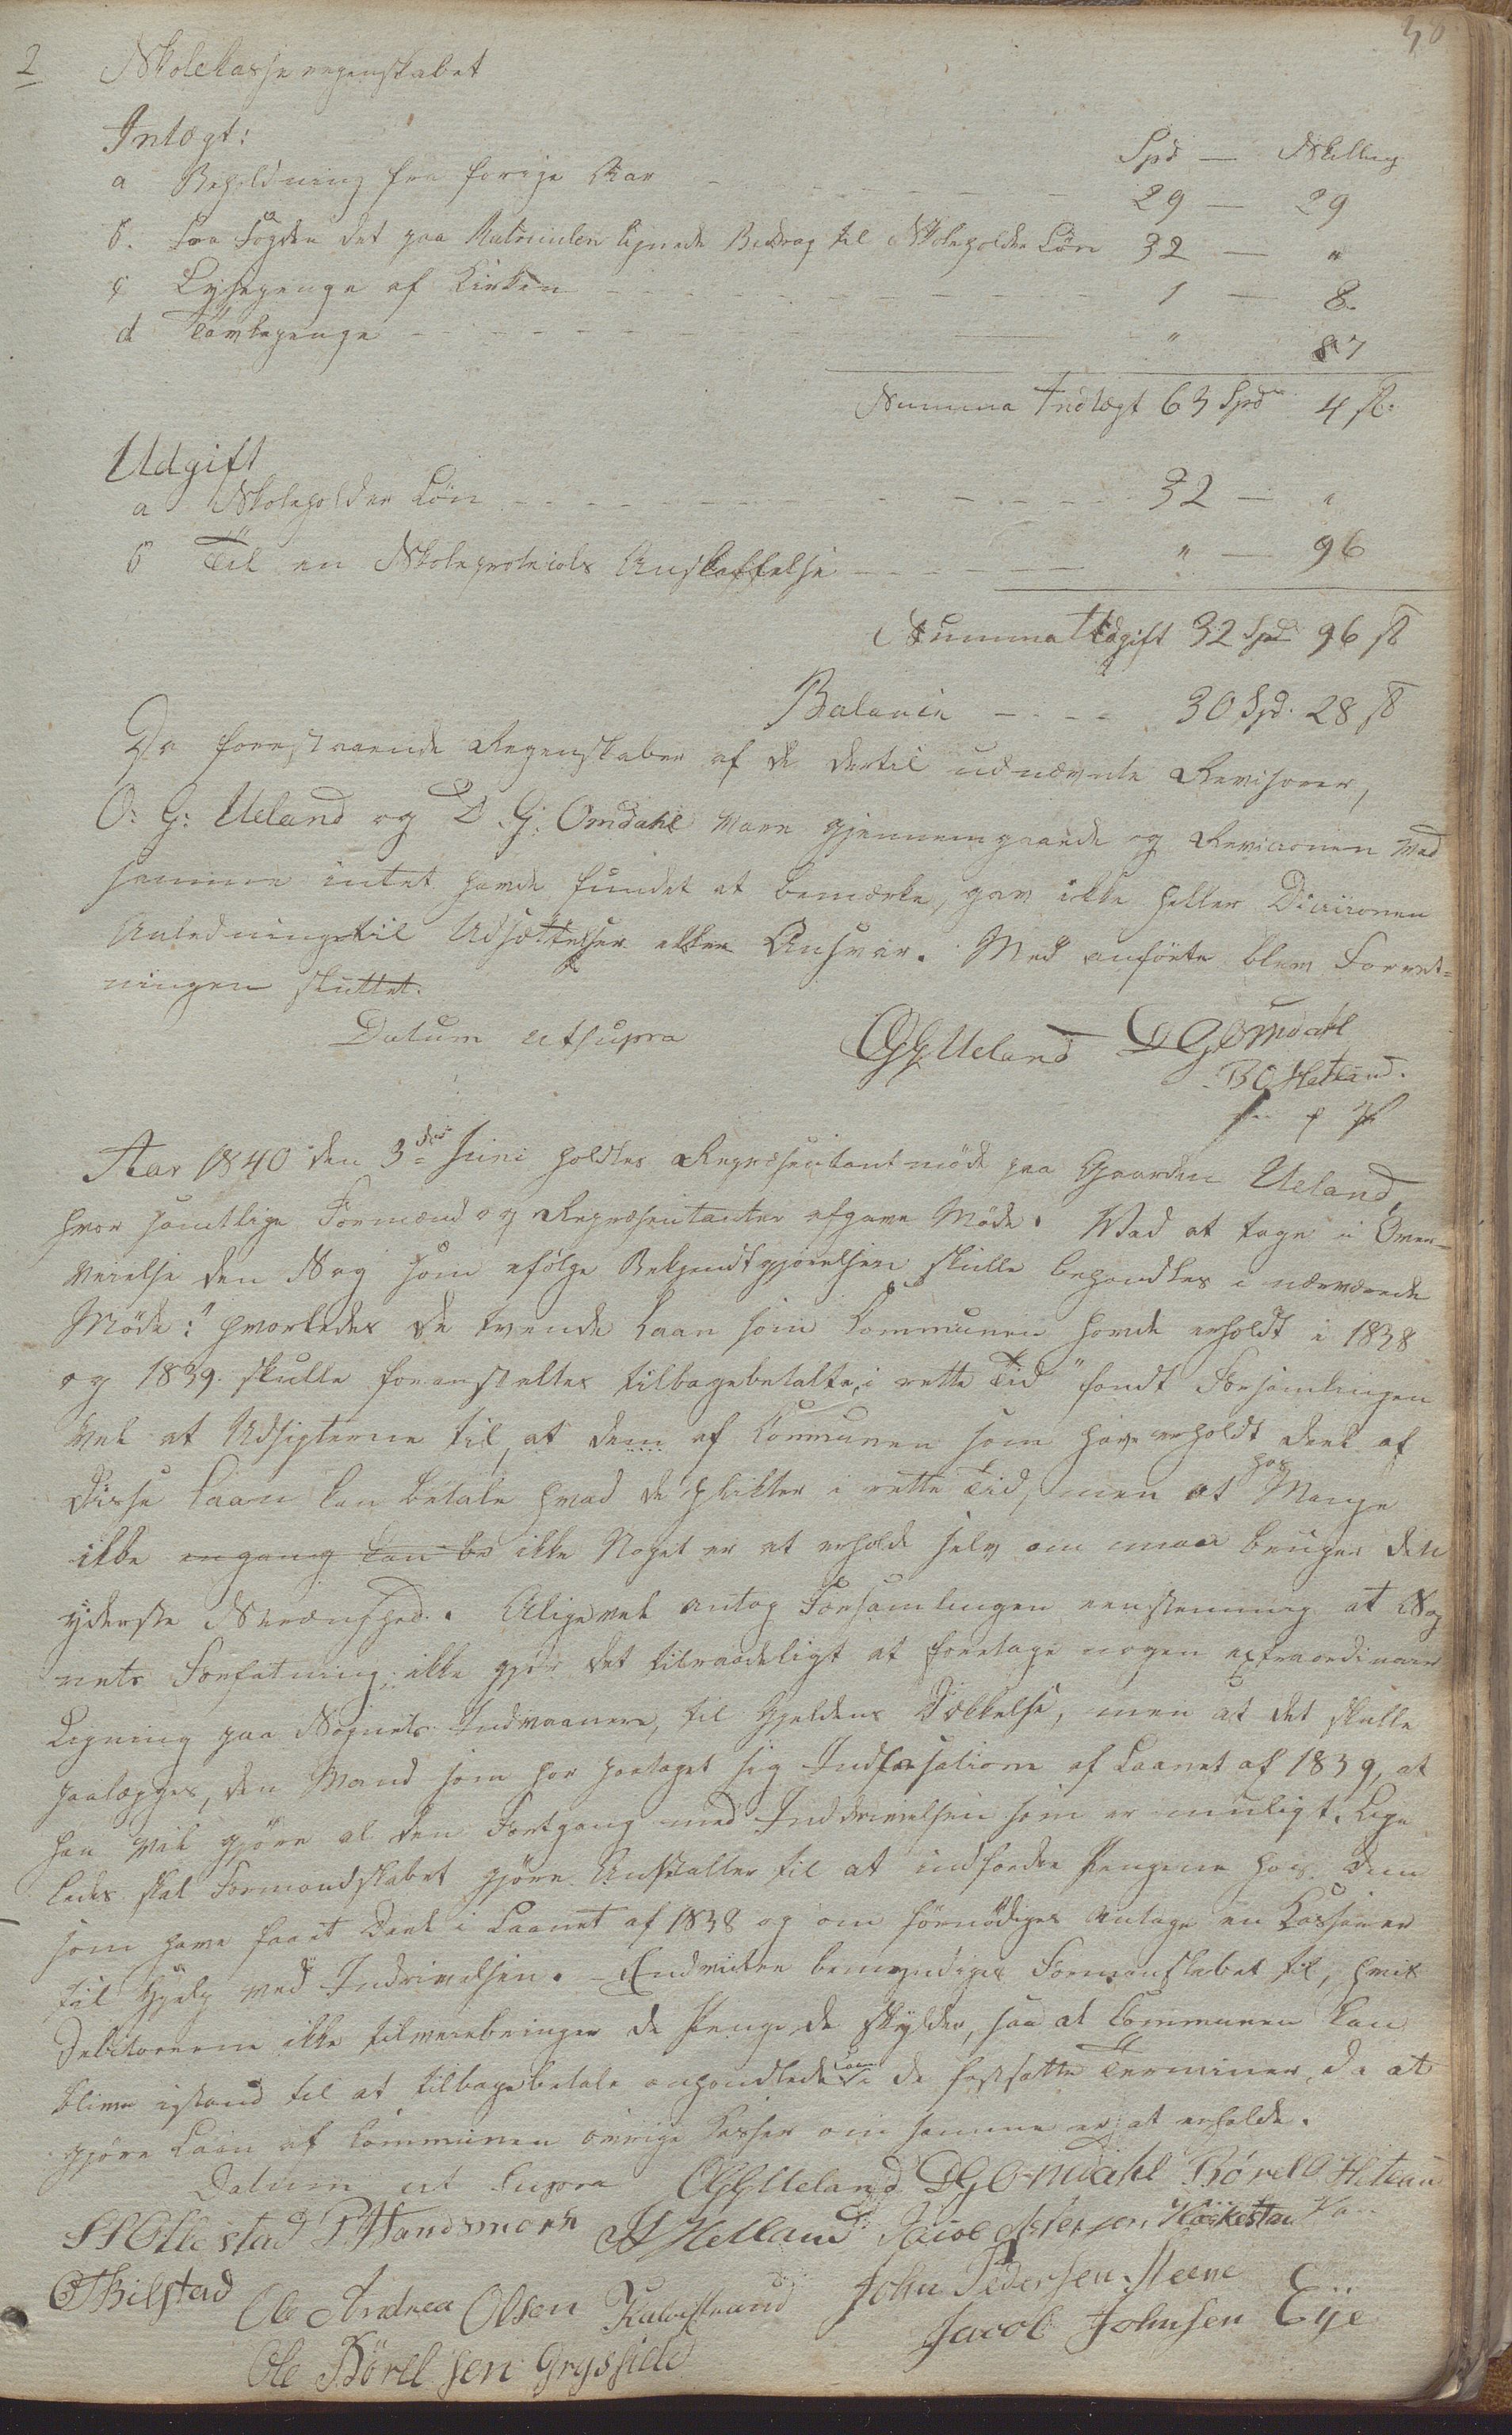 2 Skolekasseregnskabet
Intægt:
Spd — Skilling
a Beholdning fra forige Aar 29 — 29
b. Fra Fogden det paa Matriculen lignede Bidrag til Skoleholder Løn 32 — "
c Lysepenge af Kirken 1 — 8
d Tavlepenge " 87
Summa Indtægt 63 Spd 4 ß.
Udgift
a Skoleholder Løn 32 — "
b Til en Skoleprotocols Anskaffelse " — 96
Summa Udgift 32 Spd 96 ß
Balance 30 Spd. 28 ß
Da forestaaende Regnskaber af de dertil udnævnte Revisorer,
O: G: Ueland og D. G: Omdahl vare gjennemgaaede og Revisionen ved
samme intet havde fundet at bemærke, gav ikke heller Decisionen
Anledning til Udsættelser eller Ansvar. Med anførte blev Forret-
ningen sluttet.
Datum utsupra OGUeland DGOmdahl
BO Hetland.
Aar 1840 den 3die Juni holdtes Repræsentantmøde paa Gaarden Ueland,
hvor samtlige Formænd og Repræsentanter afgave Møde. Ved at tage i Over-
veielse den Sag som efølge Bekjendtgjørelsen skulle behandles i nærværende
Møde: "hvorledes de tvende Laan som Communen havde erholdt i 1838
og 1839 skulle foranstaltes tilbagebetalte, i rette Tid" fandt Forsamlingen
vel at Udsigterne til, at dem af Communen som have erholdt Deel af
disse Laan kan betale hvad de pligter i rette Tid, men at hos Mange
ikke engang kan be ikke Noget er at erholde selv om man bruger den
yderste Strænghed. Aligevel antog Forsamlingen eenstemmig at Sog
nets Forfatning ikke gjør det tilraadeligt at foretage nogen extraordinair
Ligning paa Sognets Indvaanere, til Gjeldens Dækkelse, men at det skulle
paalægges, den Mand som har paataget sig Indkasationen af Laanet af 1839, at
han vil gjøre al den Fortgang med Inddrivelsen som er muligt. Lige
ledes skal Formandskabet gjøre Anstalter til at indfordre Pengene hos dem
som have faaet Deel i Laanet af 1838 og om fornødiges antage en Casserer
til Hjelp ved Indrivelsen. Endvidere bemyndiges Formanskabet til, hvis
Debitorerne ikke tilveiebringer de Penge de skylder, saa at Communen kan
blive istand til at tilbagebetale anhandlede Laan i de fastsatte Terminer, da at
gjøre Laan af Communen øvrige Kasser om samme er at erholde.
Datum ut Supra OGUeland DGOmdahl Børel O Hetland
SS Ollestad P. Handsmark Hetland Jacob Asersen
Bilstad Ole Andreas Olsen John Pedersen Steene
Ole Børelsen Grysfield Jacob Johnsen Eye